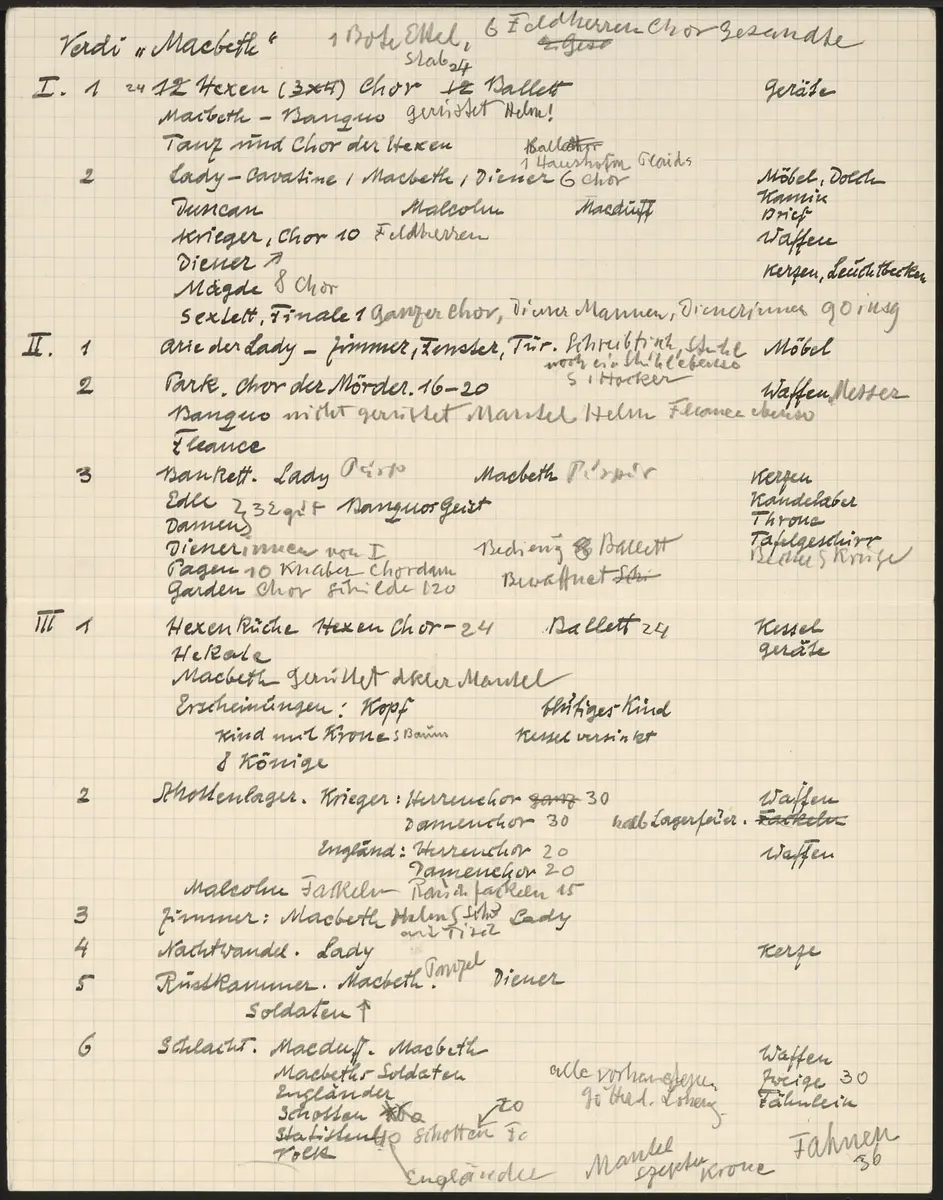 Verdi „Macbeth“ 1 Bote Ettel, 6 Feldherren Chor Gesandte
Stab 24
I. 1 24 12 Hexen (3x4) Chor 12 Ballett Geräte
Macbeth – Banquo gerüstet Helm!
Tanz und Chor der Hexen
1 Haushofm Plaids
2 Lady – Cavatine / Macbeth / Diener 6 Chor Möbel, Dolch
Kamin
Duncan Malcolm Macduff Brief
Krieger, Chor 10 Feldherren Waffen
Diener ↗
Kerzen, Leuchtbecken
Mägde 8 Chor
Sextett, Finale 1 Ganzer Chor, Diener Mannen, Dienerinnen 90 insg
II. 1 Arie der Lady – Zimmer, Fenster, Tür. Schreibtisch, Stuhl Möbel
noch ein Stuhl ebenso
2 Park. Chor der Mörder. 16–20 5 Hocker Waffen, Messer
Banquo nicht gerüstet Mantel Helm Fleance ebenso
Fleance
3 Bankett. Lady Macbeth Kerzen
Edle 32 Banquos Geist Kandelaber
Damen Throne
Dienerinnen von I Bedieng 8 Ballett Tafelgeschirr
Becher 5 Krüge
Pagen 10 Knaben Chordam Bewaffnet
Garden Chor Schilde 120
III 1 Hexenküche Hexen Chor – 24 Ballett 24 Kessel
Hekate Geräte
Macbeth Gerüstet dkler Mantel
Erscheinungen: Kopf blutiges Kind
Kind mit Krone s Baum Kessel versinkt
8 Könige
2 Shottenlager. Krieger: Herrenchor ganz 30 Waffen
Damenchor 30 Lagerfeuer. Fackeln
England: Herrenchor 20 Waffen
Damenchor 20
Malcolm Fackeln Rauchfackeln 15
3 Zimmer: Macbeth Helm Lady
4 Nachtwandel. Lady Kerze
5 Rüstkammer. Macbeth. Diener
Soldaten ↑
6 Schlacht. Macduff. Macbeth Waffen
Macbeths Soldaten alle vorhandenen Zweige 30
Engländer Fähnlein
Schotten 20
Statisten 40 Schotten
Volk
Engländer Mantel Szepter Krone Fahnen
36